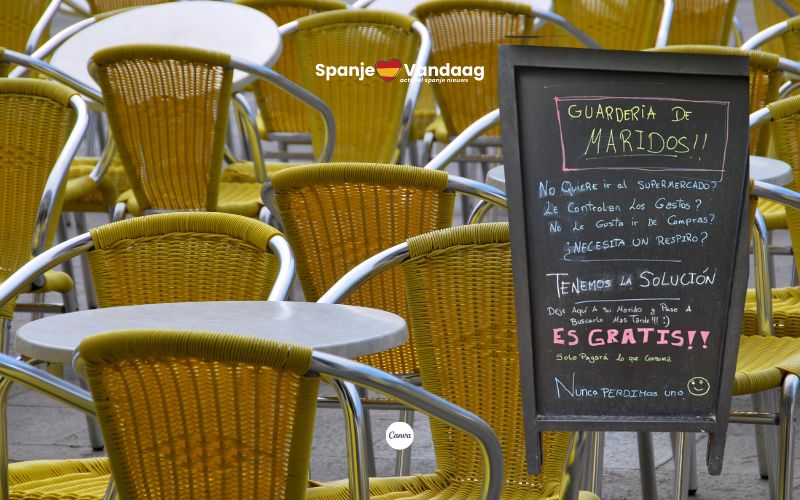 Spanje Vandaag
actueel spanje nieuws
GUARDERÍA DE
MARIDOS!!
No Quiere ir al SUPERMERCADO?
Le Controlan Los Gestos?
No Le Gusta ir De Compras?
¿NECESITA UN RESPIRO?
TENEMOS LA SOLUCIÓN
Deje Aquí A su Marido y Pase A
Buscarlo Mas Tarde!!! :)
ES GRATIS!!
Solo Pagará lo que Consuma
Nunca PERDIMOS uno
Canva